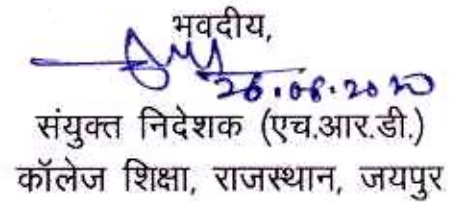 भवदीय,
26.08.2020
संयुक्त निदेशक (एच.आर.डी.)
कॉलेज शिक्षा, राजस्थान, जयपुर